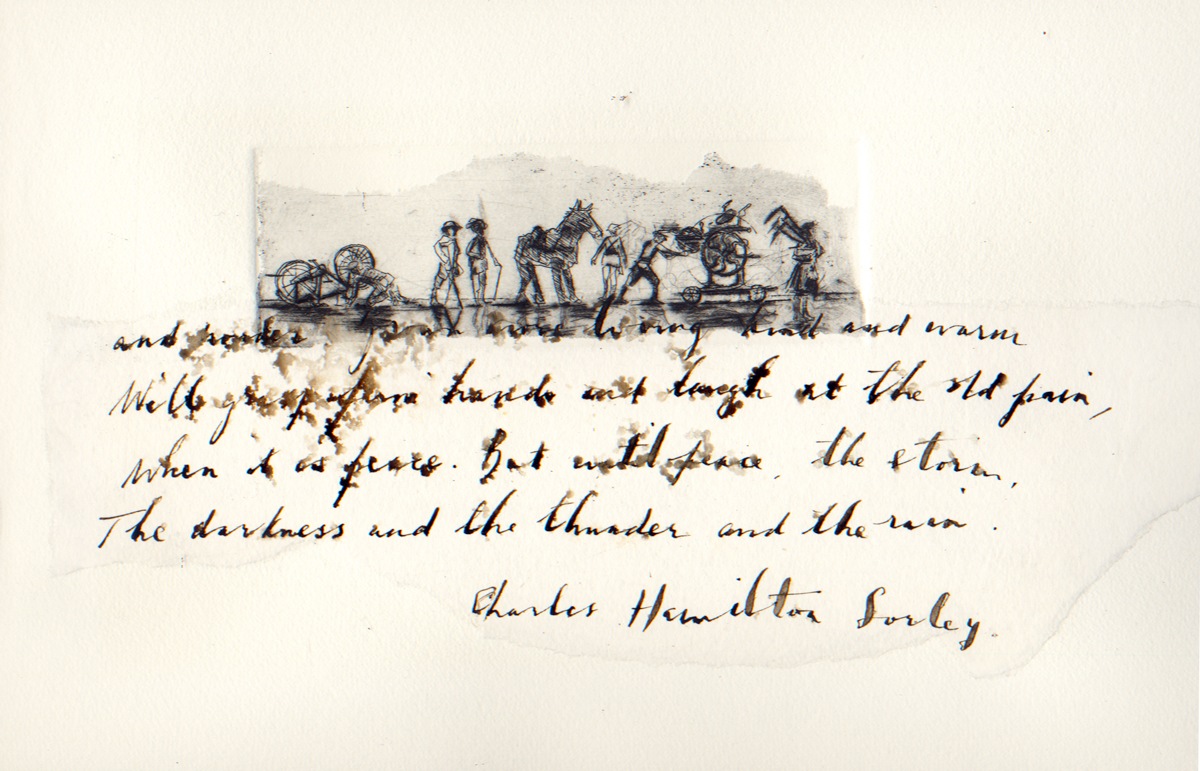 and wonder. Grown more loving kind and warm
We'll grasp firm hands and laugh at the old pain,
When it is peace. But until peace, the storm,
The darkness and the thunder and the rain.
Charles Hamilton Sorley.